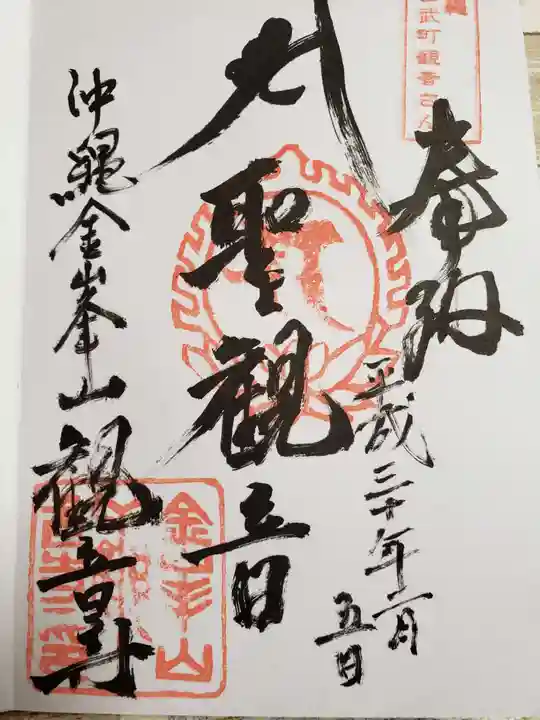 武町観音さん
奉拝
平成三十年一月
五日
聖観音
沖縄金峯山観音寺
金峯山